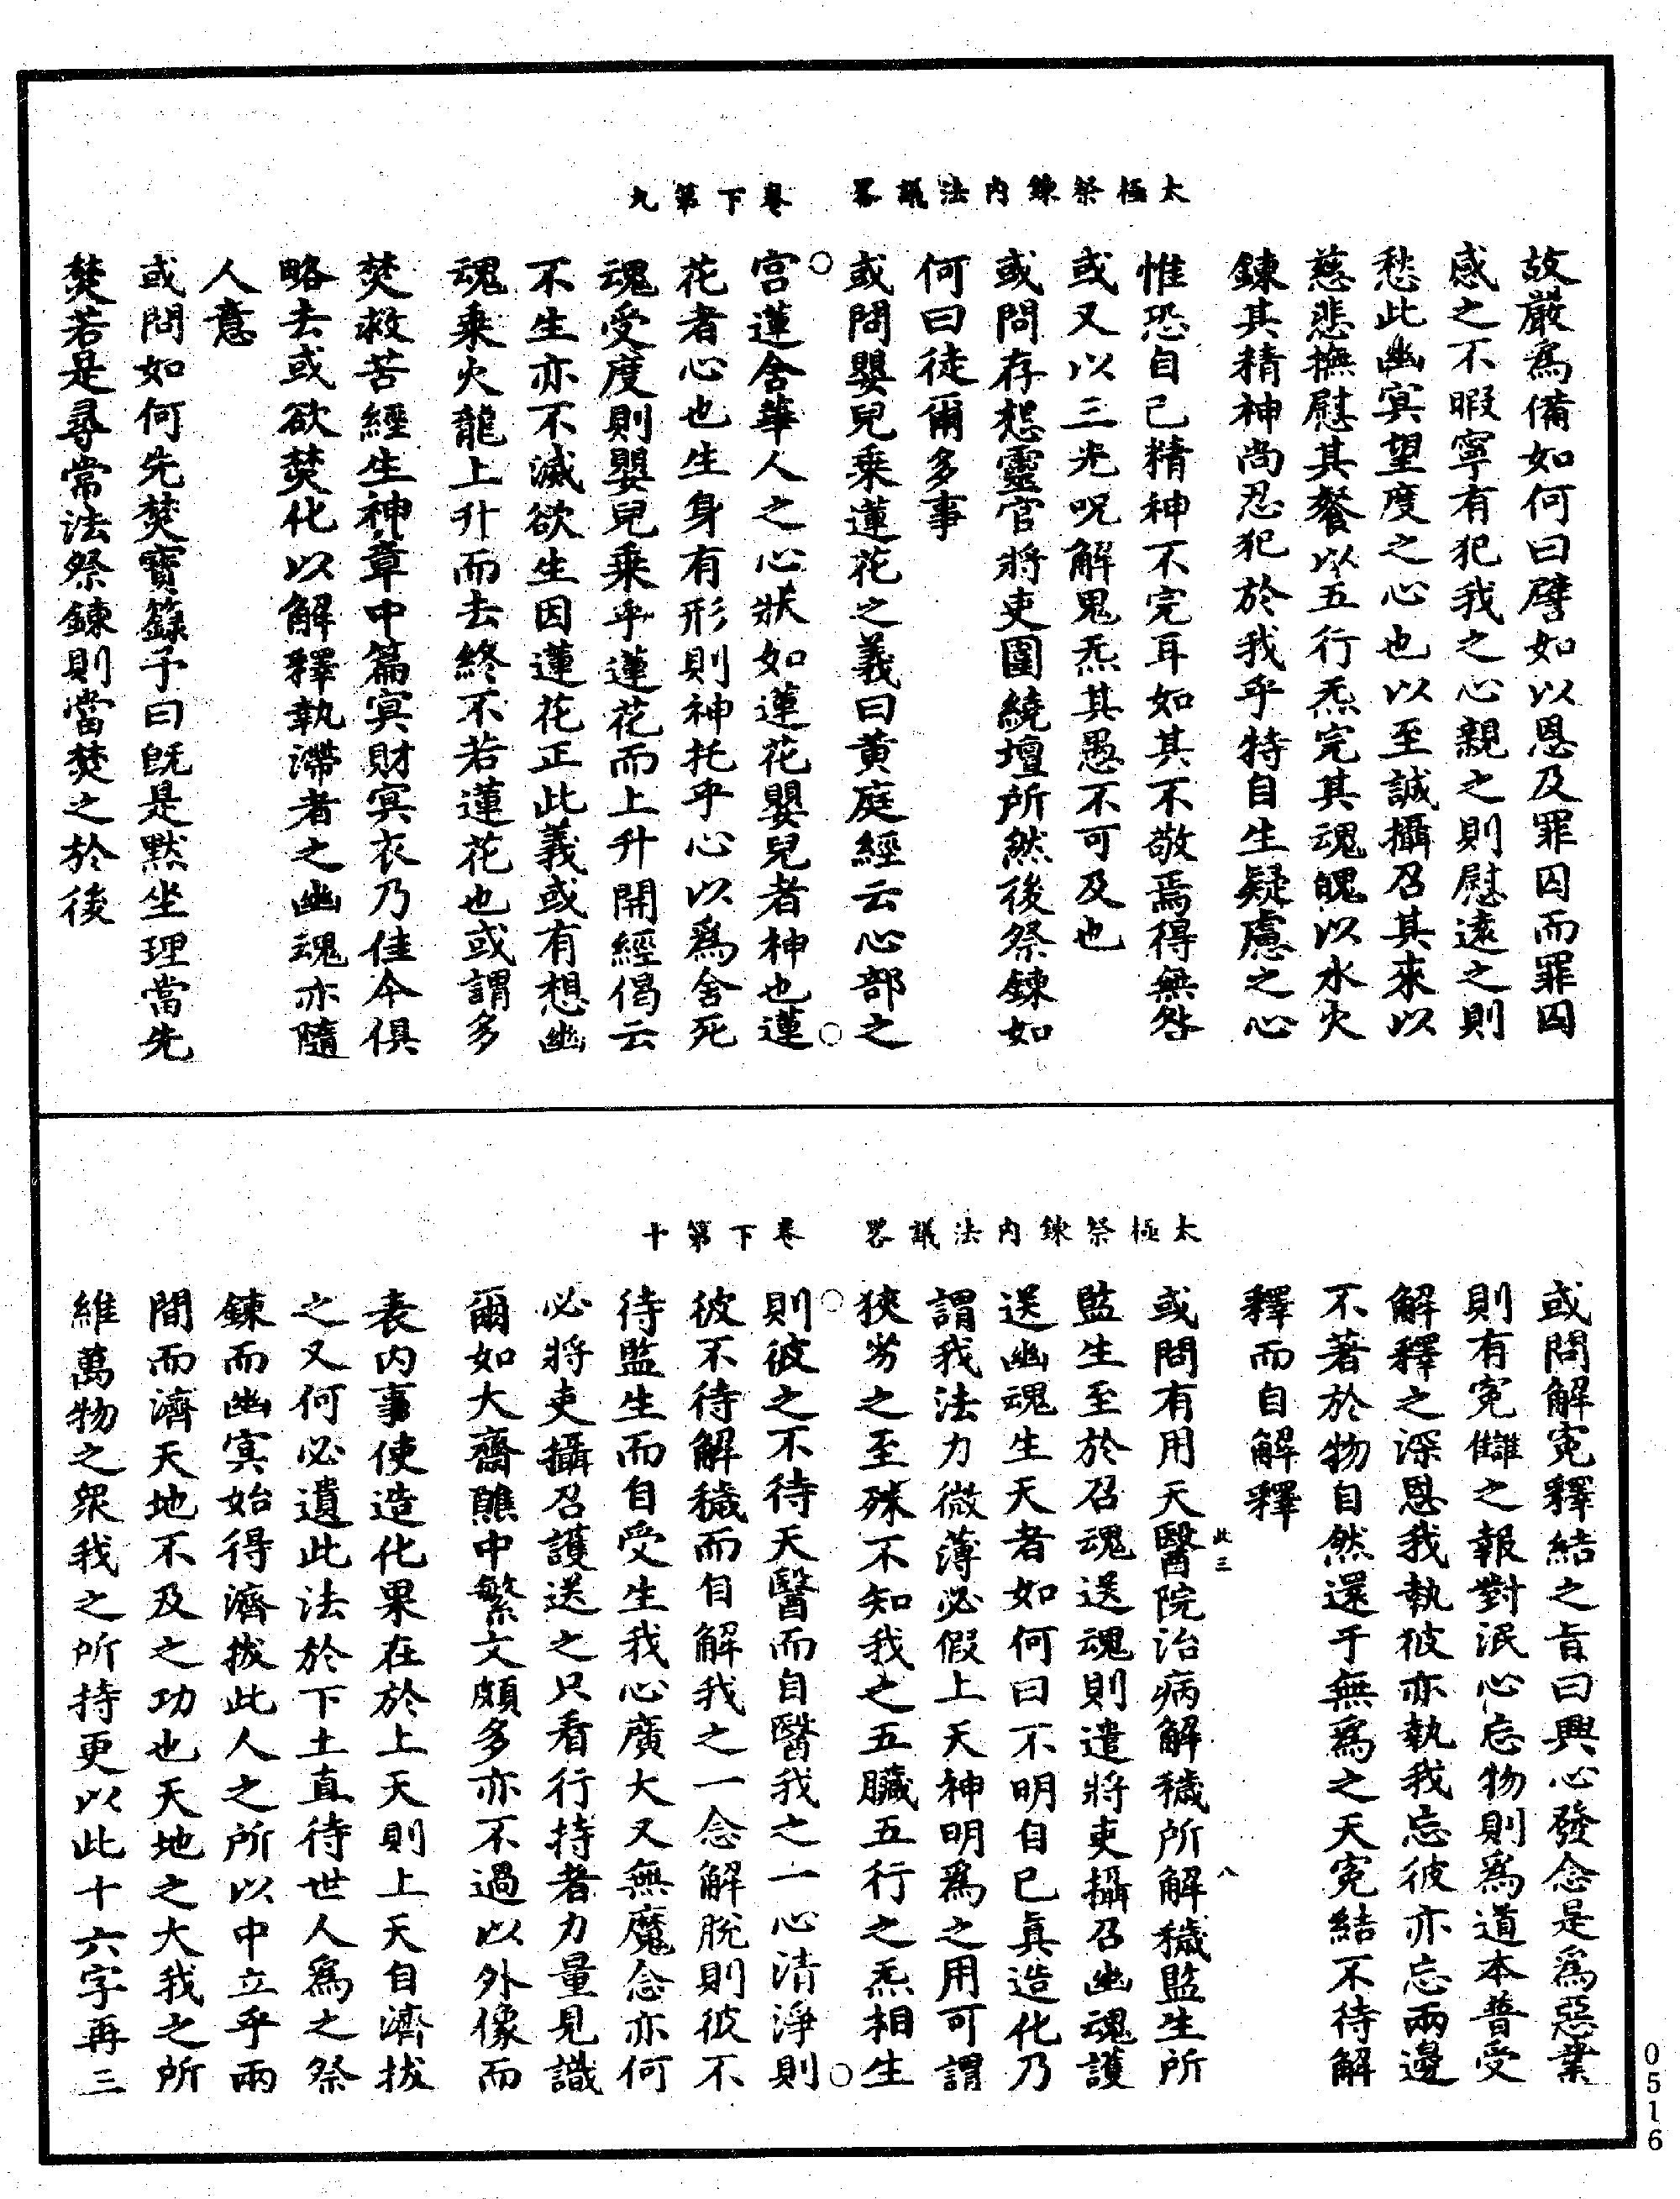 故嚴爲備如何曰譬如以恩及罪囚而罪囚
感之不暇寧有犯我之心親之則慰遠之則
愁此幽冥望度之心也以至誠攝召其來以
慈悲撫慰其餐以五行炁完其魂魄以水火
鍊其精神尚忍犯於我乎特自生疑慮之心
惟恐自己精神不完耳如其不敬焉得無咎
或又以三光呪解鬼炁其愚不可及也
或問存想靈官將吏圍繞壇所然後祭鍊如
何曰徒爾多事
或問嬰兒乗蓮花之義曰黄庭經云心部之
太極祭鍊內法議畧　卷下第九
宮蓮含華人之心狀如蓮花嬰兒者神也蓮
花者心也生身有形則神托乎心以爲舍死
魂受度則嬰兒乗乎蓮花而上升開經偈云
不生亦不滅欲生因蓮花正此義或有想幽
魂乗火龍上升而去終不若蓮花也或謂多
焚救苦經生神章中篇冥財冥衣乃佳今俱
略去或欲焚化以解釋執滯者之幽魂亦隨
人意
或問如何先焚寶籙予曰旣是默坐理當先
焚若是尋常法祭鍊則當焚之於後
或問解寃釋結之旨曰興心發念是爲惡業
則有寃讎之報對泯心忘物則爲道本普受
解釋之深恩我執彼亦執我忘彼亦忘兩邊
不著於物自然還于無爲之天寃結不待解
釋而自解釋
此三　八
或問有用天醫院治病解穢所解穢監生所
監生至於召魂送魂則遣將吏攝召幽魂護
送幽魂生天者如何曰不明自己眞造化乃
謂我法力微薄必假上天神明爲之用可謂
狹劣之至殊不知我之五臟五行之炁相生
太極祭鍊內法議畧　卷下第十
則彼之不待天醫而自醫我之一心清淨則
彼不待解穢而自解我之一念解脫則彼不
待監生而自受生我心廣大又無魔念亦何
必將吏攝召護送之只看行持者力量見識
爾如大齋醮中繁文頗多亦不過以外像而
表内事使造化果在於上天則上天自濟拔
之又何必遺此法於下土直待世人爲之祭
鍊而幽冥始得濟拔此人之所以中立乎兩
間而濟天地不及之功也天地之大我之所
維萬物之衆我之所持更以此十六字再三
0516